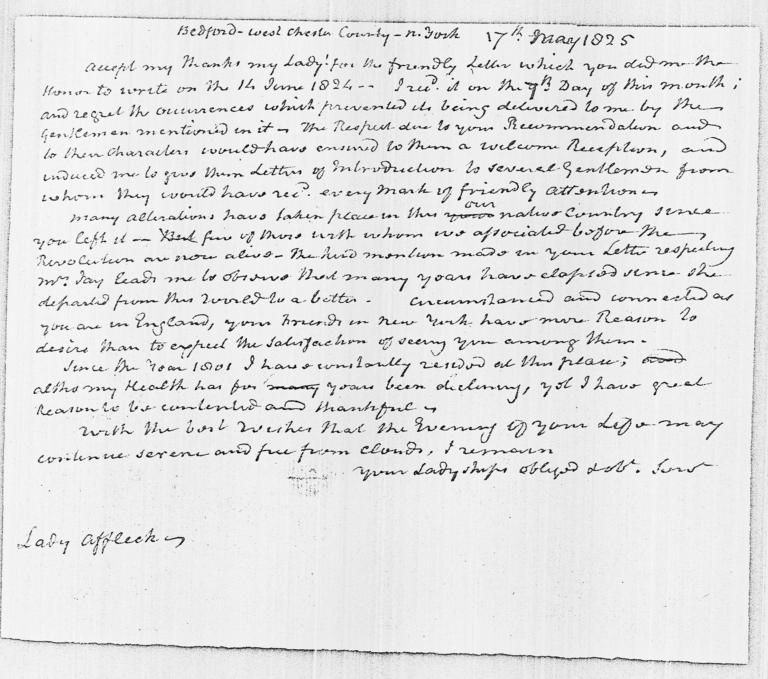 Bedford - West Chester County - N. York 17th. May 1825
Accept my Thanks my Lady! for the friendly Letter which you did me the
Honor to write on the 14 June 1824 -- I recd. it on the 7th Day of this month;
and regret the occurrences which prevented its being delivered to me by the
Gentlemen mentioned in it - The Respect due to your Recommendation and
to their Characters would have ensured to them a welcome Reception, and
induced me to give them Letters of Introduction to several Gentlemen from
whom they would have recd. every mark of friendly attention -
many alterations have taken place in this your our native Country since
you left it -- But few of those with whom we associated before the
Revolution are now alive - The kind mention made in your Letter respecting
Mrs. Jay leads me to observe that many years have elapsed since she
departed from this world to a better - Circumstanced and connected as
you are in England, your Friends in new York have more Reason to
desire than to expect the Satisfaction of seeing you among them -
Since the Year 1801 I have constantly resided at this place; and
altho my Health has for many years been declining, yet I have great
Reason to be contented and thankful -
With the best wishes that the Evening of your Life may
continue serene and free from clouds, I remain
your Ladyships obliged & obt. Servt
Lady Affleck -